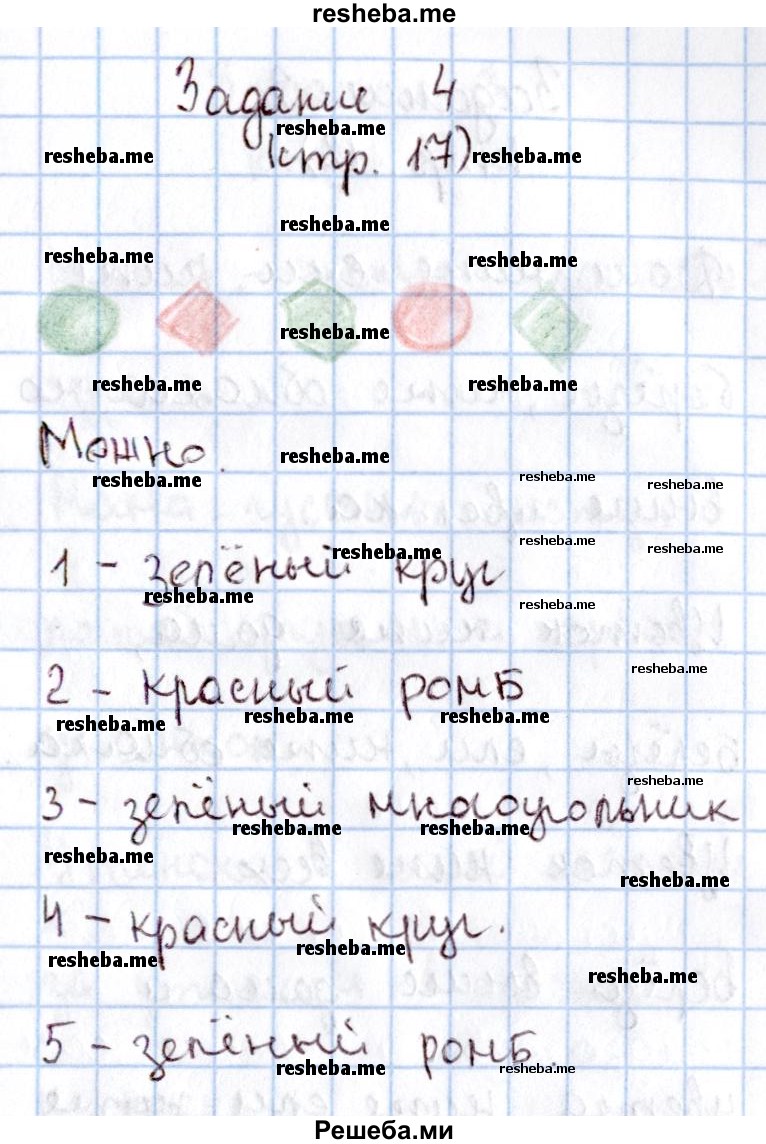 resheba.me
Задание 4
resheba.me
resheba.me (стр. 17) resheba.me
resheba.me
resheba.me resheba.me
resheba.me
resheba.me resheba.me
Можно. resheba.me
resheba.me resheba.me resheba.me
resheba.me resheba.me
1 - зелёный круг
resheba.me
resheba.me resheba.me
resheba.me
2 - красный ромб
resheba.me resheba.me resheba.me
resheba.me
3 - зелёный многоугольник
resheba.me resheba.me
resheba.me resheba.me
4 - красный круг.
resheba.me
resheba.me resheba.me
5 - зелёный ромб.
resheba.me resheba.me
Решеба.ми